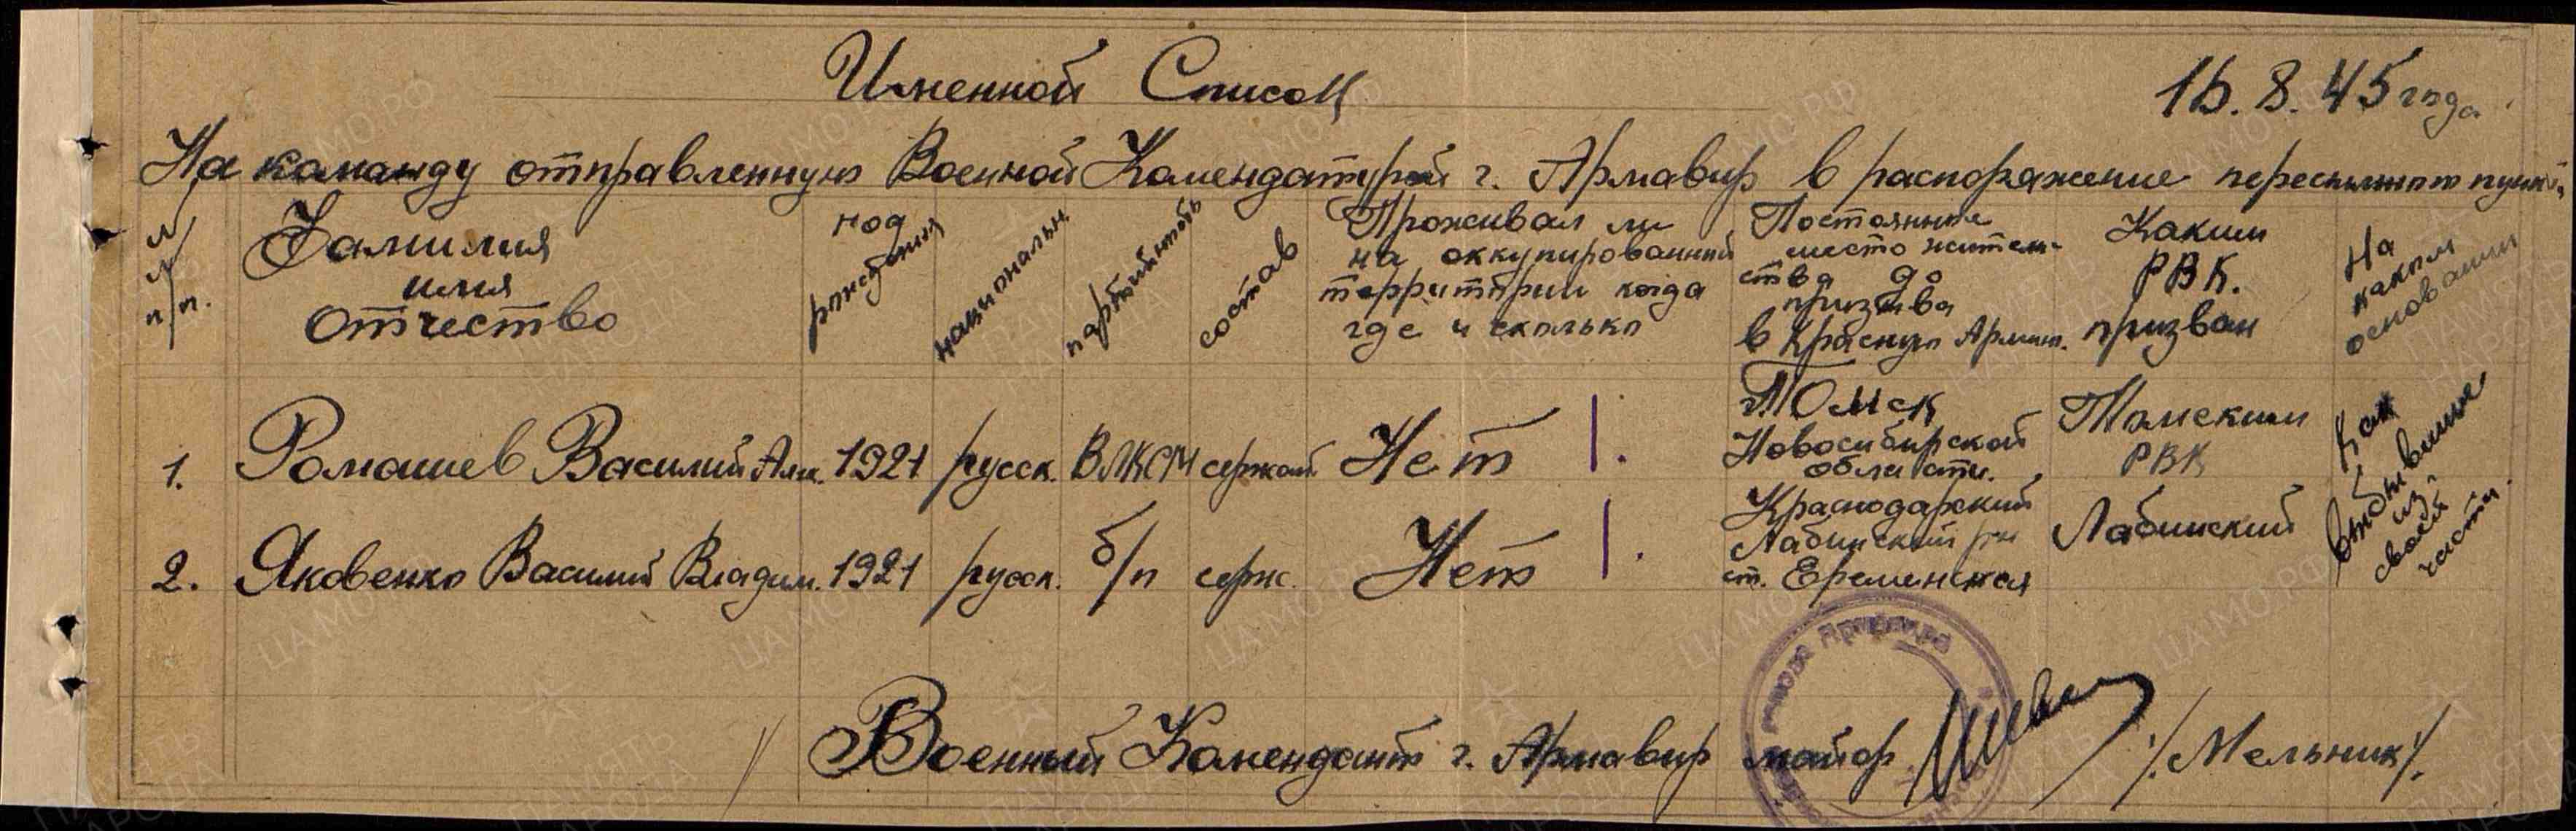 Именной Список
15.8.45 года
На команду отправленную Военной Комендатурой г. Армавир в распоряжение пересыльного пункта
№№ п/п.
Фамилия
имя
отчество
год
рождения
национальн.
партийность
состав
Проживал ли
на оккупированной
территории когда
где и сколько
Постоянное
место житель-
ства до
призыва
в Красную Армию.
Каким
РВК.
призван
На
каком
основании
1. Ромашев Василий Алек. 1921 русск. ВЛКСМ сержант Нет
г. Томск
Новосибирской
области.
Томским
РВК
2. Яковенко Василий Владим. 1921 русск. б/п серж. Нет
Краснодарский
Лабинский р-н
ст. Еременская
Лабинский
Как
выбывшие
из
своей
части.
Военный Комендант г. Армавир майор /Мельник/.
ЦАМО.РФ
ПАМЯТЬ НАРОДА